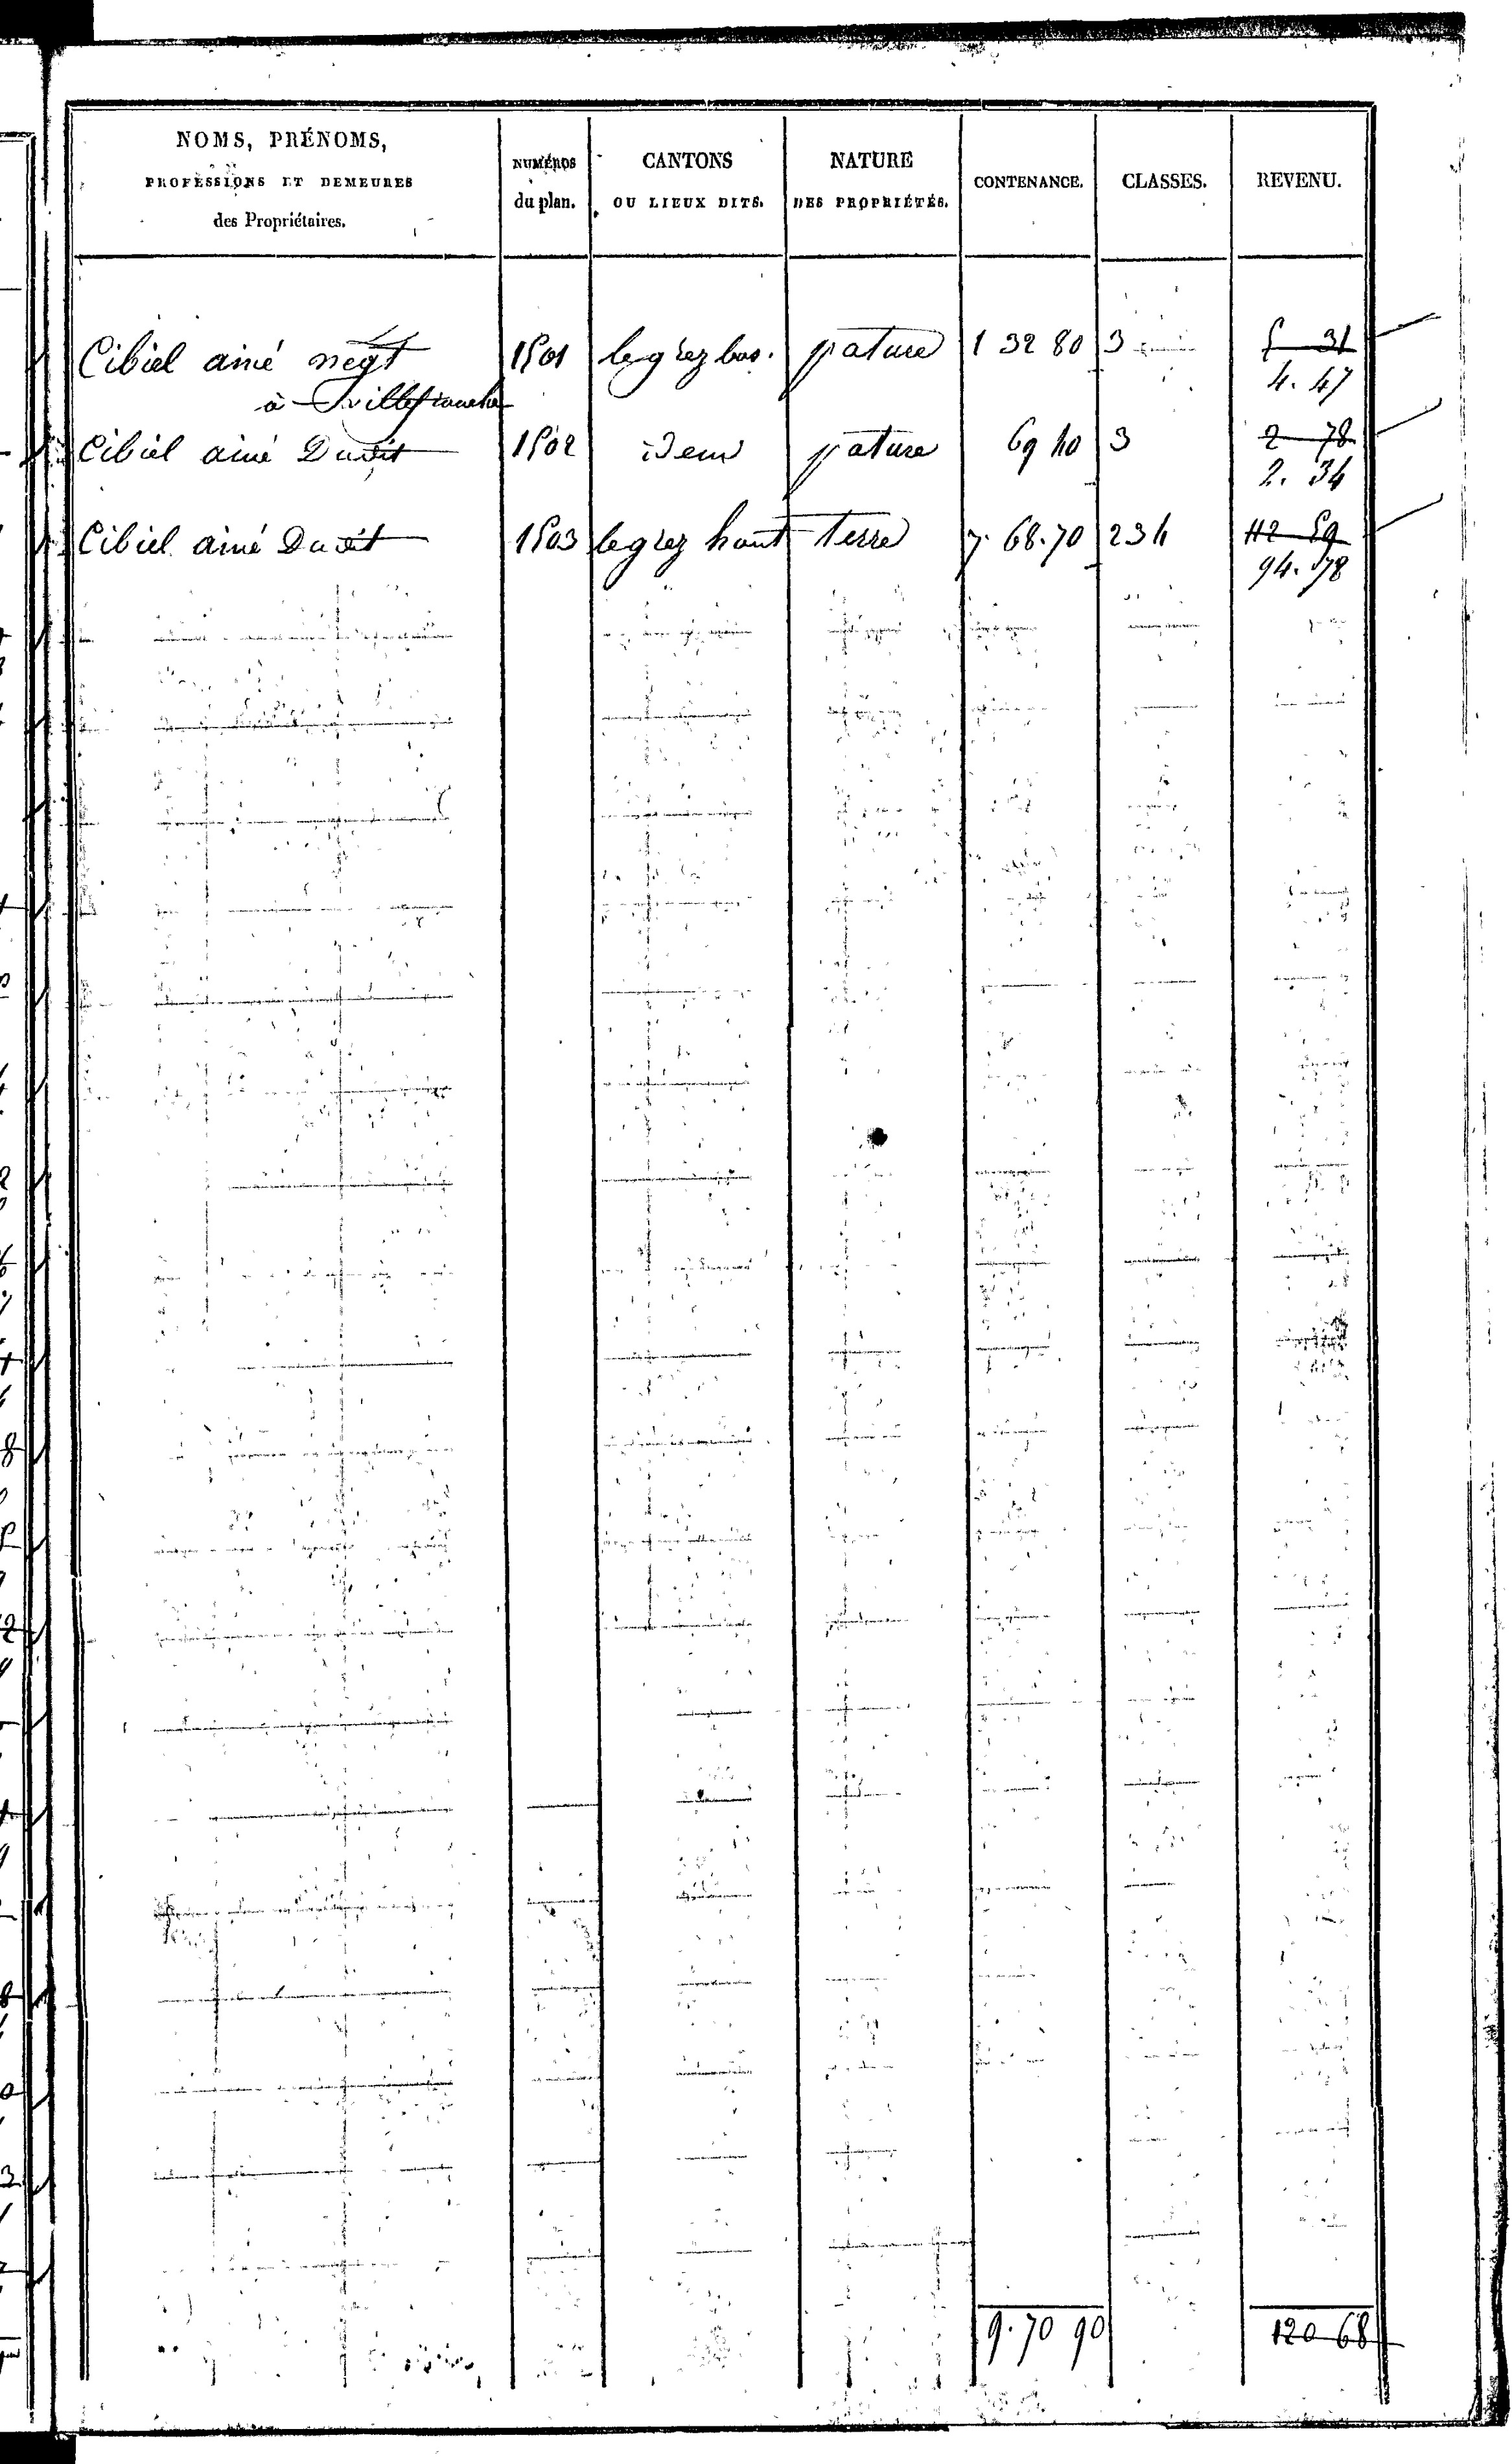 NOMS, PRÉNOMS,
PROFESSIONS ET DEMEURES
des Propriétaires.
NUMÉROS
du plan.
CANTONS
OU LIEUX DITS.
NATURE
DES PROPRIÉTÉS.
CONTENANCE.
CLASSES.
REVENU.
Cibiel ainé negt 1501 le grez bas. pature 1 32 80 3 5 31
à Villefranche 4. 47
Cibiel ainé Dudit 1502 idem pature 69 40 3 2 78
2. 34
Cibiel ainé Dudit 1503 le grez haut terre 7. 68. 70 2 3 4 112 59
94. 78
9. 70 90 120 68